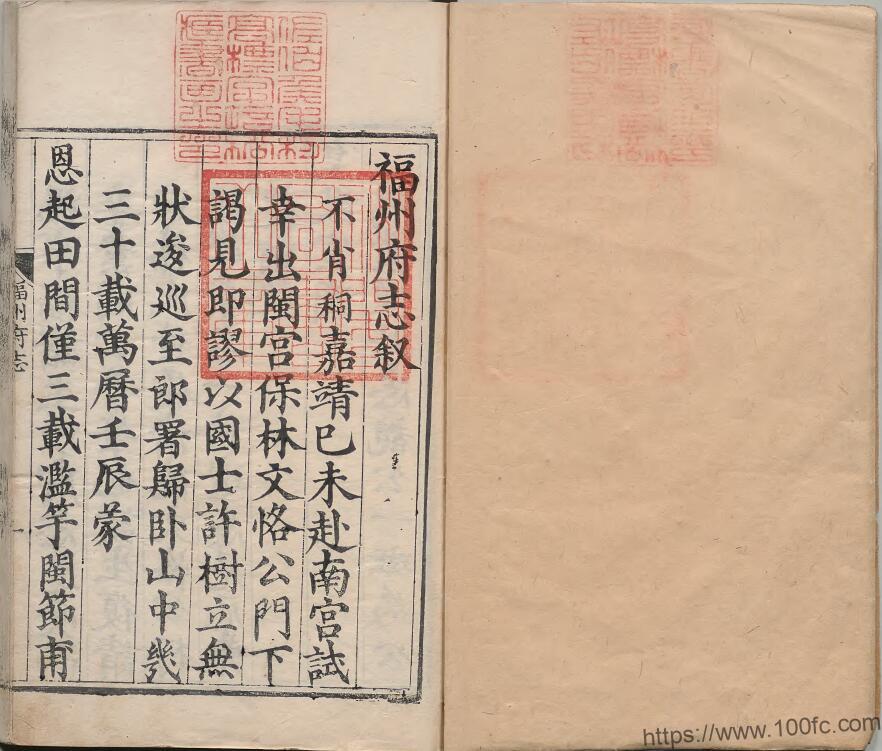 福州府志叙
不肖秱嘉靖巳未赴南宫試
幸出閩宫保林文恪公門下
謁見即謬以國士許樹立無
狀逡巡至郎署歸卧山中幾
三十載萬曆壬辰蒙
恩起田間僅三載濫竽閩節甫
福州府志
https://www.100fc.com